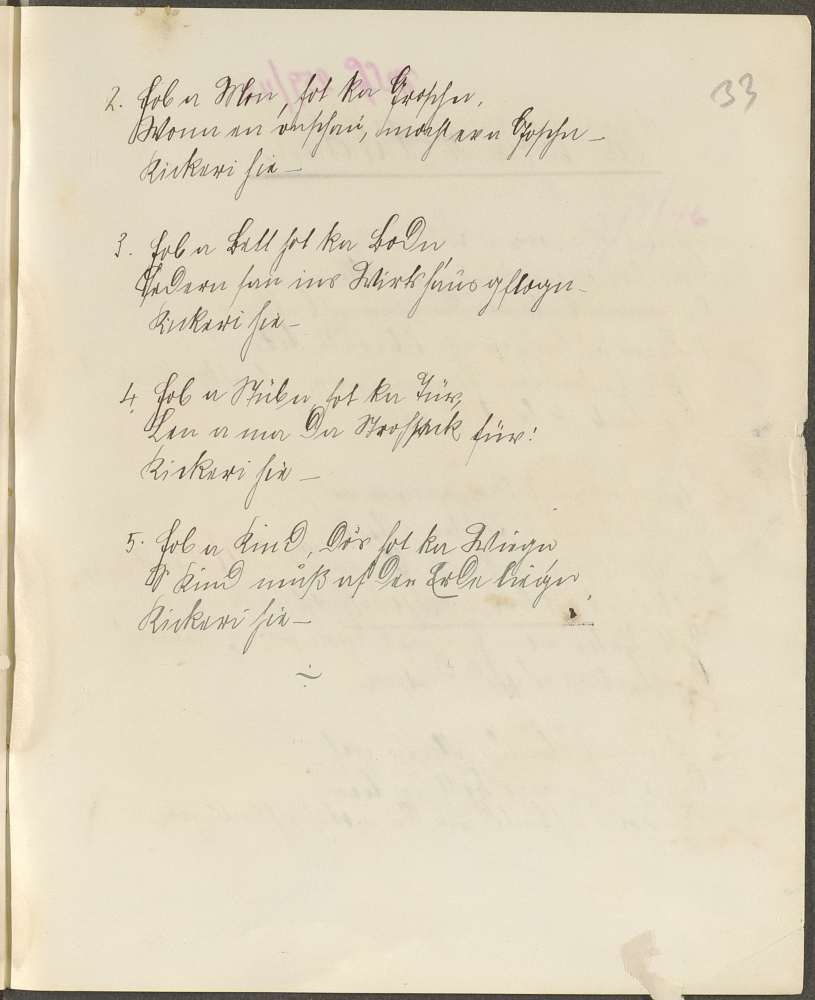 33
2. Hob a Mon, hot ka Groschn,
Wonn en onschau, mocht era Goschn –
Kickeri hie –
3. Hob a Bett hot ka Bodn
Federn san ins Wirtshaus gflogn –
Kickeri hie –
4. Hob a Stubn hot ka Tür,
Len a ma da Strohsack für!
Kickeri hie –
5. Hob a Kind, dös hot ka Wiegn
S' Kind muß af der Erde liegn,
Kickeri hie –